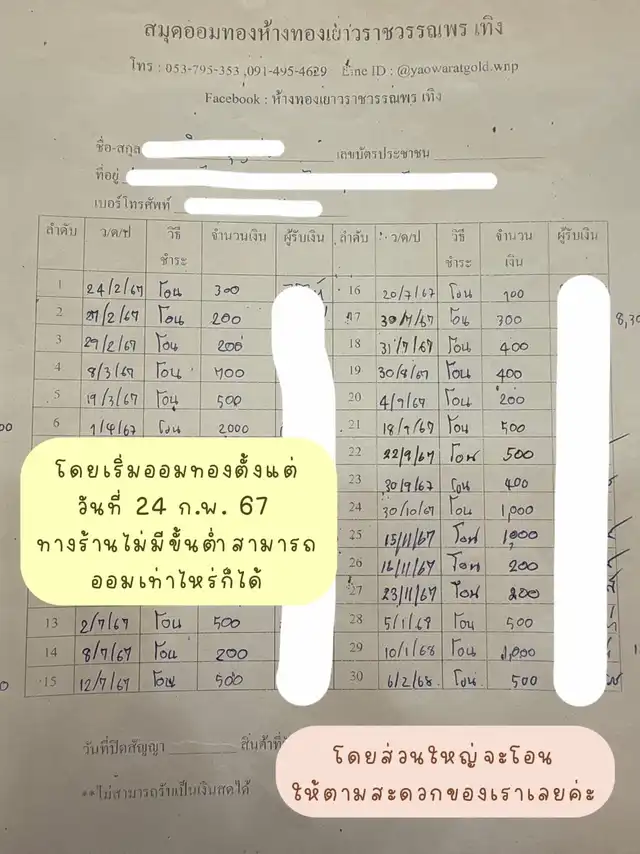 สมุดออมทองห้างทองเยาวราชวรรณพร เทิง
โทร : 053-795-353 ,091-495-4629 Line ID : @yaowaratgold.wnp
Facebook : ห้างทองเยาวราชวรรณพร เทิง
ชื่อ-สกุล เลขบัตรประชาชน
ที่อยู่
เบอร์โทรศัพท์
ลำดับ ว/ด/ป วิธีชำระ จำนวนเงิน ผู้รับเงิน ลำดับ ว/ด/ป วิธีชำระ จำนวนเงิน ผู้รับเงิน
1 24/2/67 โอน 300 16 20/7/67 โอน
2 27/2/67 โอน 200 17 30/7/67 โอน 300
3 29/2/67 โอน 200 18 31/7/67 โอน 400
4 8/3/67 โอน 700 19 30/8/67 โอน 400
5 19/3/67 โอน 500 20 4/9/67 โอน 200
6 1/4/67 โอน 2000 21 18/9/67 โอน 500
22 22/9/67 โอน 500
23 30/9/67 โอน 400
24 30/10/67 โอน 1,000
25 15/11/67 โอน
26 16/11/67 โอน 200
27 23/11/67 โอน 200
โดยเริ่มออมทองตั้งแต่
วันที่ 24 ก.พ. 67
ทางร้านไม่มีขั้นต่ำสามารถ
ออมเท่าไหร่ก็ได้
13 2/7/67 โอน 500 28 5/1/68 โอน 500
14 8/7/67 โอน 200 29 10/1/68 โอน
15 12/7/67 โอน 500 30 6/2/68 โอน 500
วันที่ปิดสัญญา
**ไม่สามารถรับเป็นเงินสดได้
โดยส่วนใหญ่จะโอน
ให้ตามสะดวกของเราเลยค่ะ